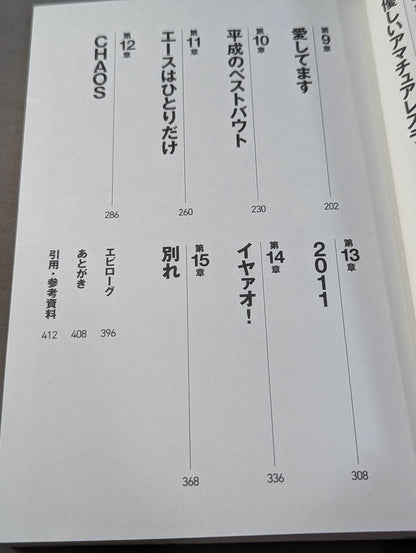 優しいアマチュアレスラ
第9章
愛してます
202
第10章
平成のベストバウト
230
第11章
エースはひとりだけ
260
第12章
CHAOS
286
第13章
2011
308
第14章
イヤァオ！
336
第15章
別れ
368
エピローグ
396
あとがき
408
引用・参考資料
412